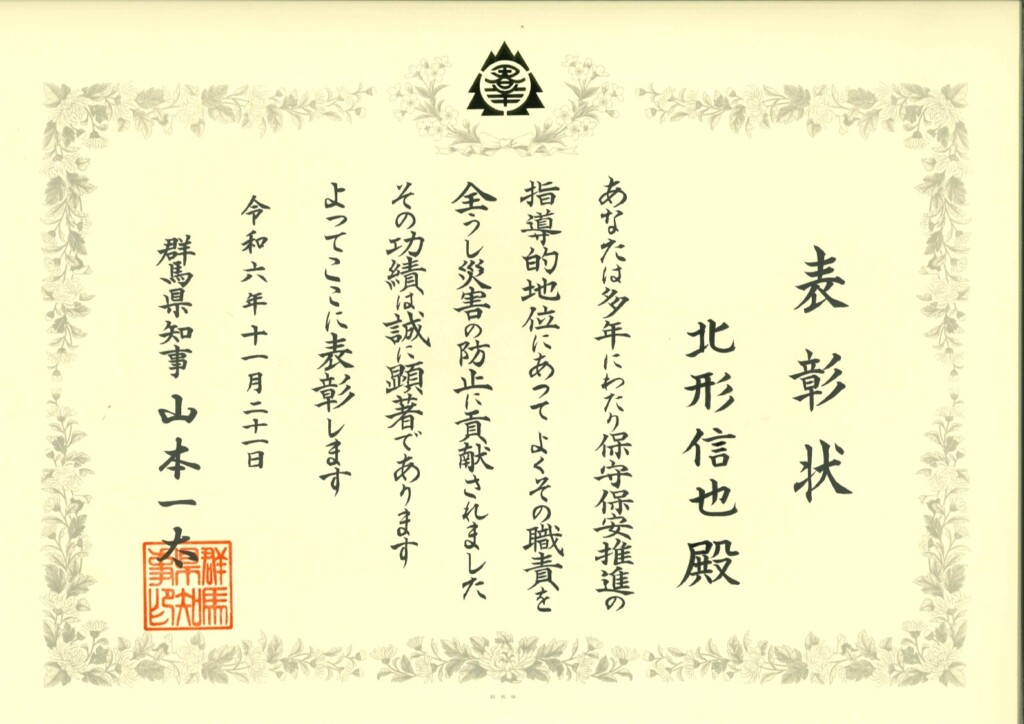 表彰状
北形信也殿
あなたは多年にわたり保守保安推進の
指導的地位にあって よくその職責を
全うし災害の防止に貢献されました
その功績は誠に顕著であります
よってここに表彰します
令和六年十一月二十一日
群馬県知事 山本一太
群馬
県知
事印